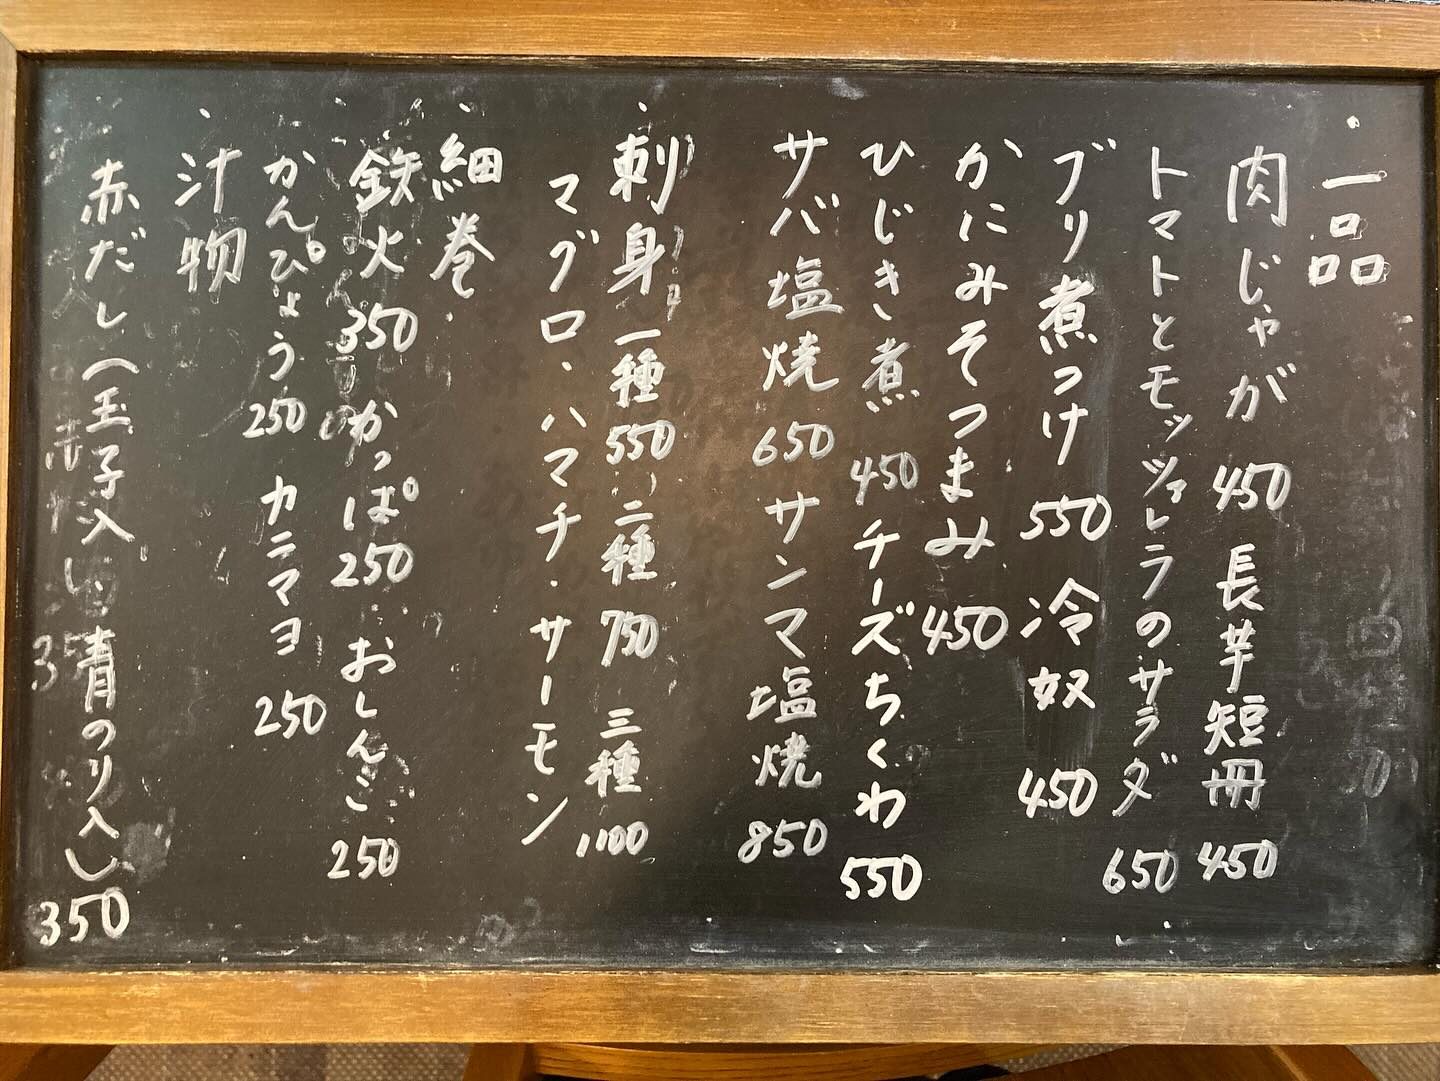 一品
肉じゃが 450 長芋短冊 450
トマトとモッツァレラのサラダ 650
ブリ煮つけ 550 冷奴 450
かにみそつまみ 450
ひじき煮 450 チーズちくわ 550
サバ塩焼 650 サンマ塩焼 850
刺身 一種 550 二種 750 三種 1100
マグロ・ハマチ・サーモン
細巻
鉄火 350 かっぱ 250 おしんこ 250
かんぴょう 250 カニマヨ 250
汁物
赤だし(玉子入し、青のり入し) 350